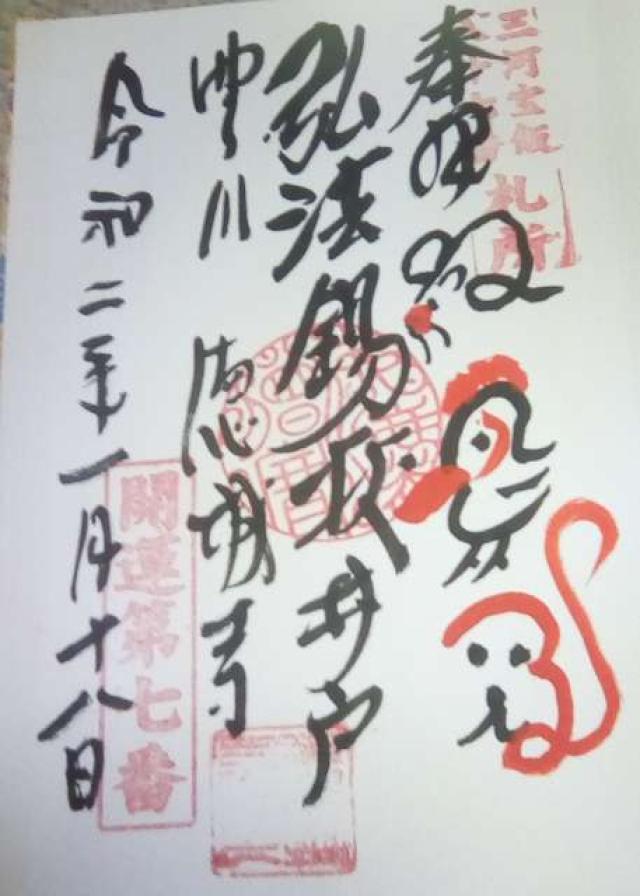 三河宝飯
札所
奉拝
弘法錫杖井戸
豊川 徳城寺
令和二年一月十八日
開運第七番